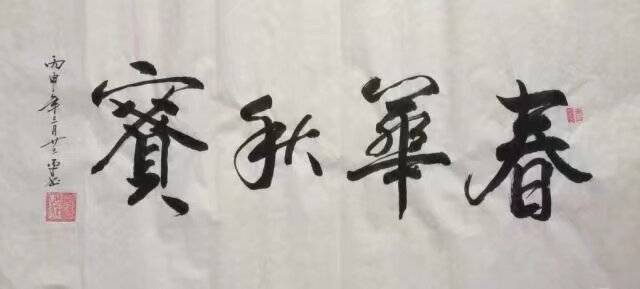 春華秋實
丙申年三月廿